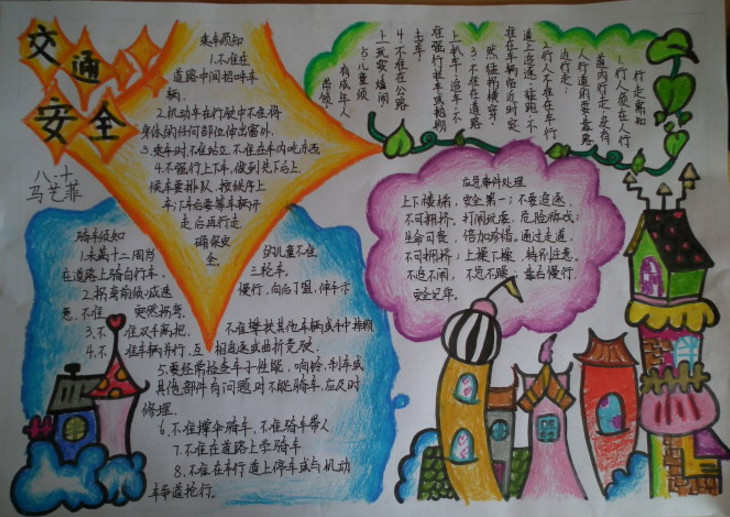 交通
安全
八.十
马艺菲
乘车须知
1.不准在
道路中间招呼车
辆.
2.机动车在行驶中不准将
身体的任何部位伸出窗外.
3.乘车时,不准站立,不准在车内吃东西
4.不强行上下车,做到先下后上,
候车要排队,按秩序上
车;下车后要等车辆开
走后再行走,
确保安
全。
行走需知
1.行人须在人行
道内行走,没有
人行道的要靠路
边行走;
2.行人不准在车行
道上追逐、猛跑,不
准在车辆临近时突
然猛拐横穿;
3.不准在道路
上扒车、追车,不
在强行拦车或抛砸
击车;
4.不准在公路
上玩耍、嬉闹
5.儿童须
有成年人
带领
应急事件处理
上下楼梯,安全第一;不要追逐,
不可拥挤.打闹玩耍,危险游戏;
生命可贵,倍加珍惜。通过走道,
不可拥挤;上操下操,特别注意。
不追不闹,不跑不跳;靠右慢行,
安全记牢。
骑车须知
1.未满十二周岁的儿童不准
在道路上骑自行车、三轮车。
2.拐弯前须减速慢行,向后了望,伸手示
意,不准突然拐弯.
3.不准双手离把,不准攀扶其他车辆或手中持物
4.不准车辆并行,互相追逐或曲折竞驶.
5.要经常检查车子性能,响铃、刹车或
其他部件有问题时不能骑车,应及时
修理.
6.不准撑伞骑车,不准骑车带人
7.不准在道路上学骑车
8.不准在车行道上停车或与机动
车争道抢行。